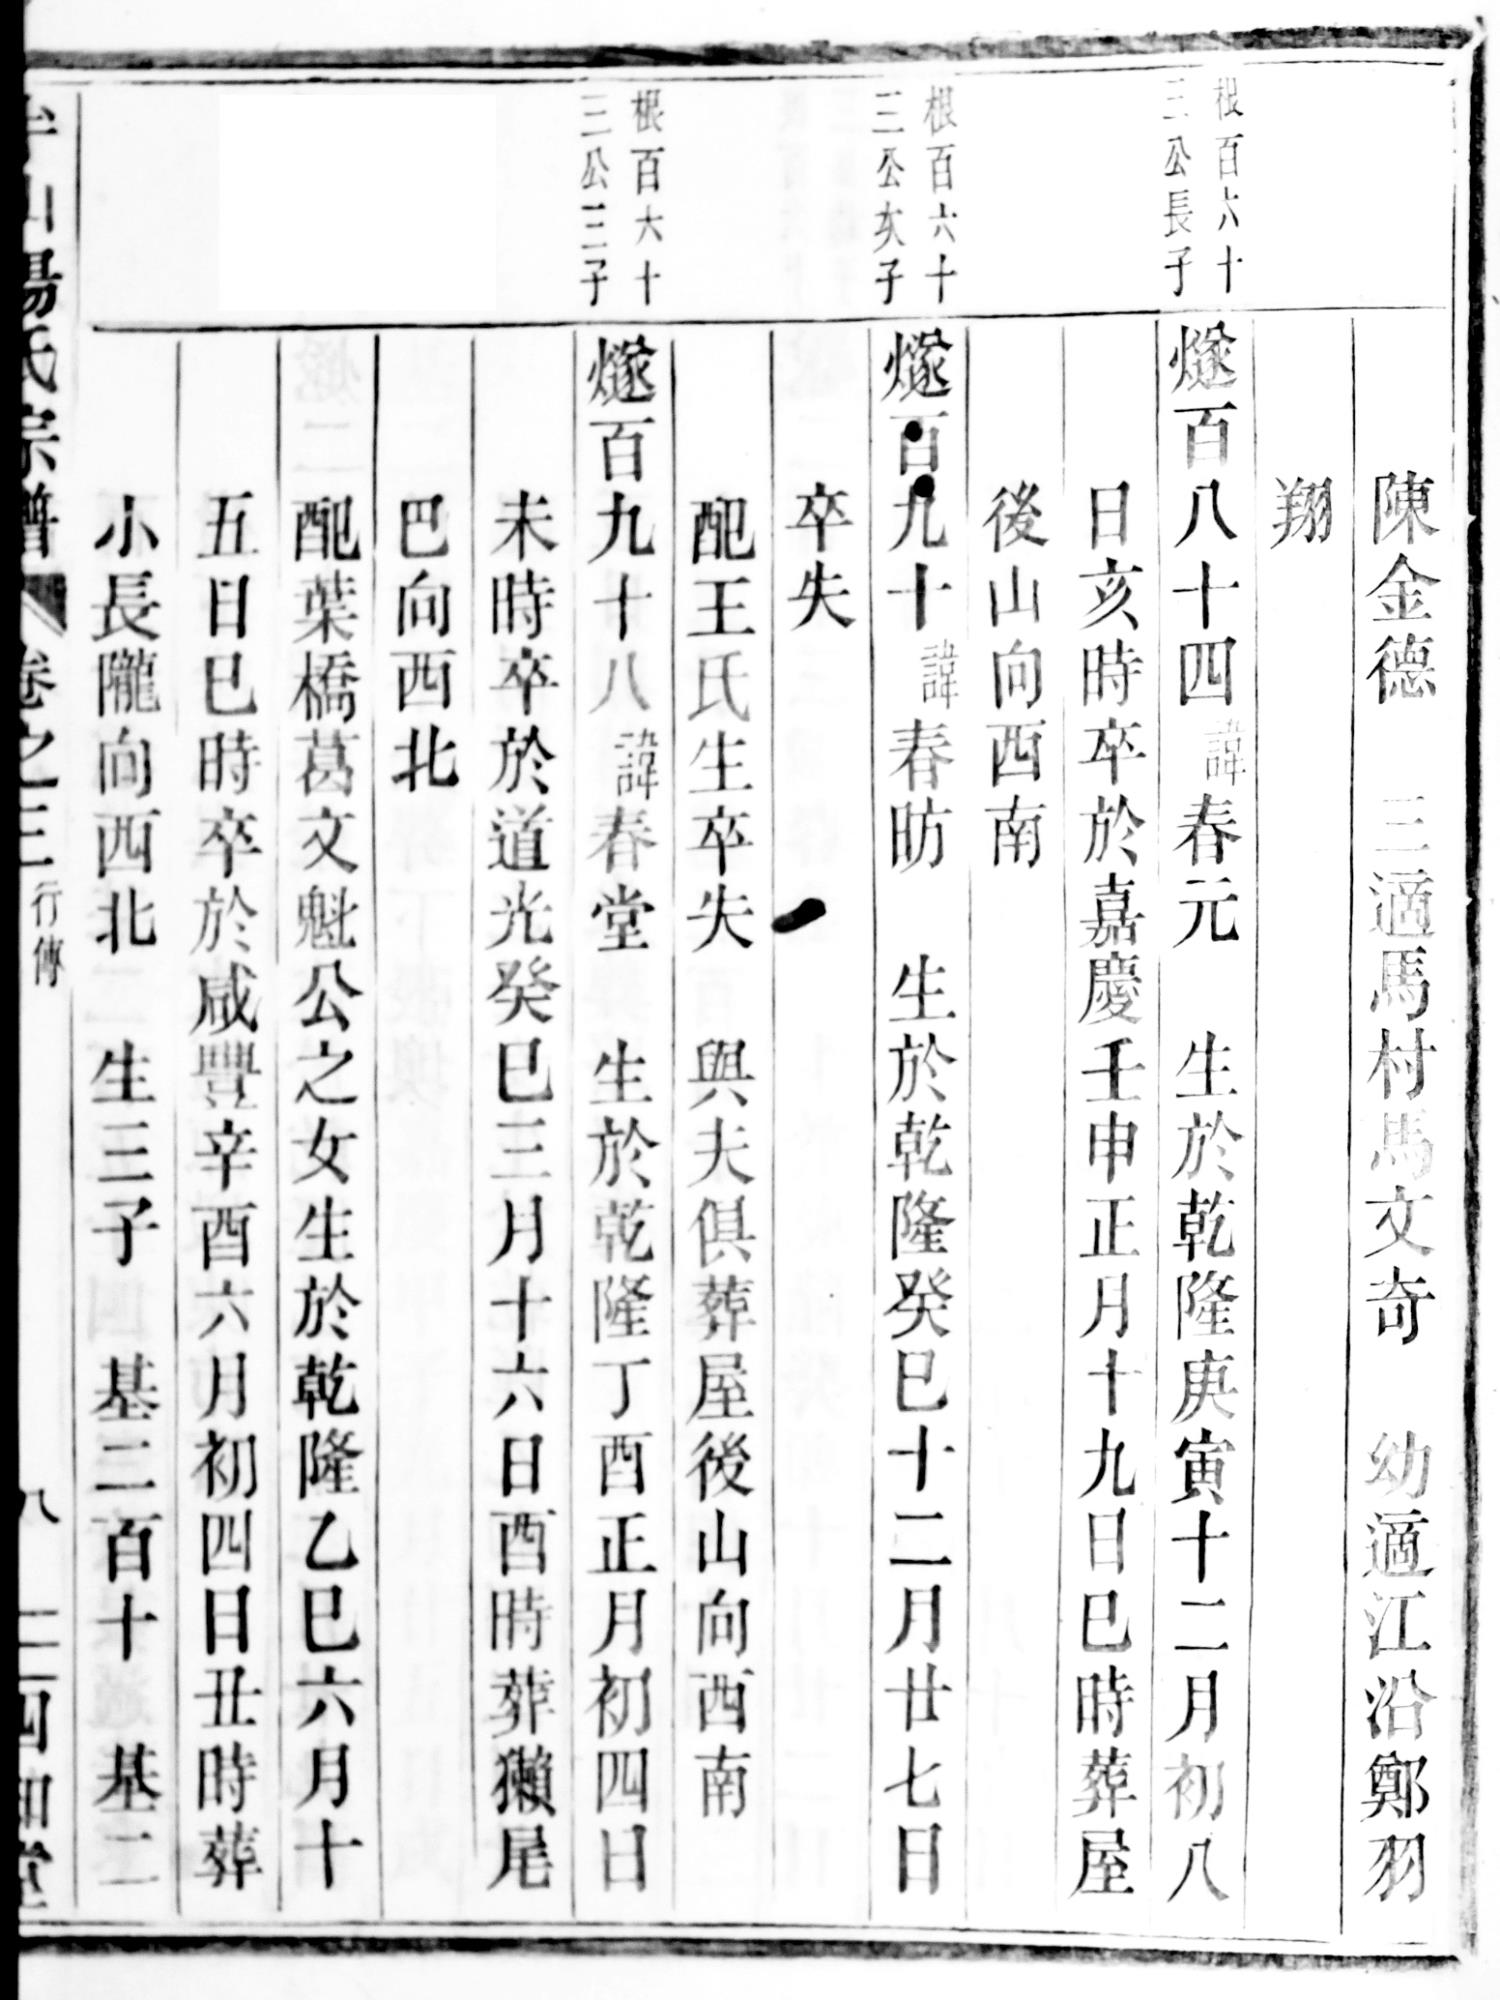 陳金德　三適馬村馬文奇　幼適江沿鄭羽
翔
根百六十
三公長子
燧百八十四諱春元　生於乾隆庚寅十二月初八
日亥時卒於嘉慶壬申正月十九日巳時葬屋
後山向西南
根百六十
三公次子
燧百九十諱春昉　生於乾隆癸巳十二月廿七日
卒失
配王氏生卒失　與夫俱葬屋後山向西南
根百六十
三公三子
燧百九十八諱春堂　生於乾隆丁酉正月初四日
未時卒於道光癸巳三月十六日酉時葬獺尾
巴向西北
配葉橋葛文魁公之女生於乾隆乙巳六月十
五日巳時卒於咸豐辛酉六月初四日丑時葬
小長隴向西北　生三子　基二百十　基二
山楊氏宗譜　卷之三行傳　八　四知堂